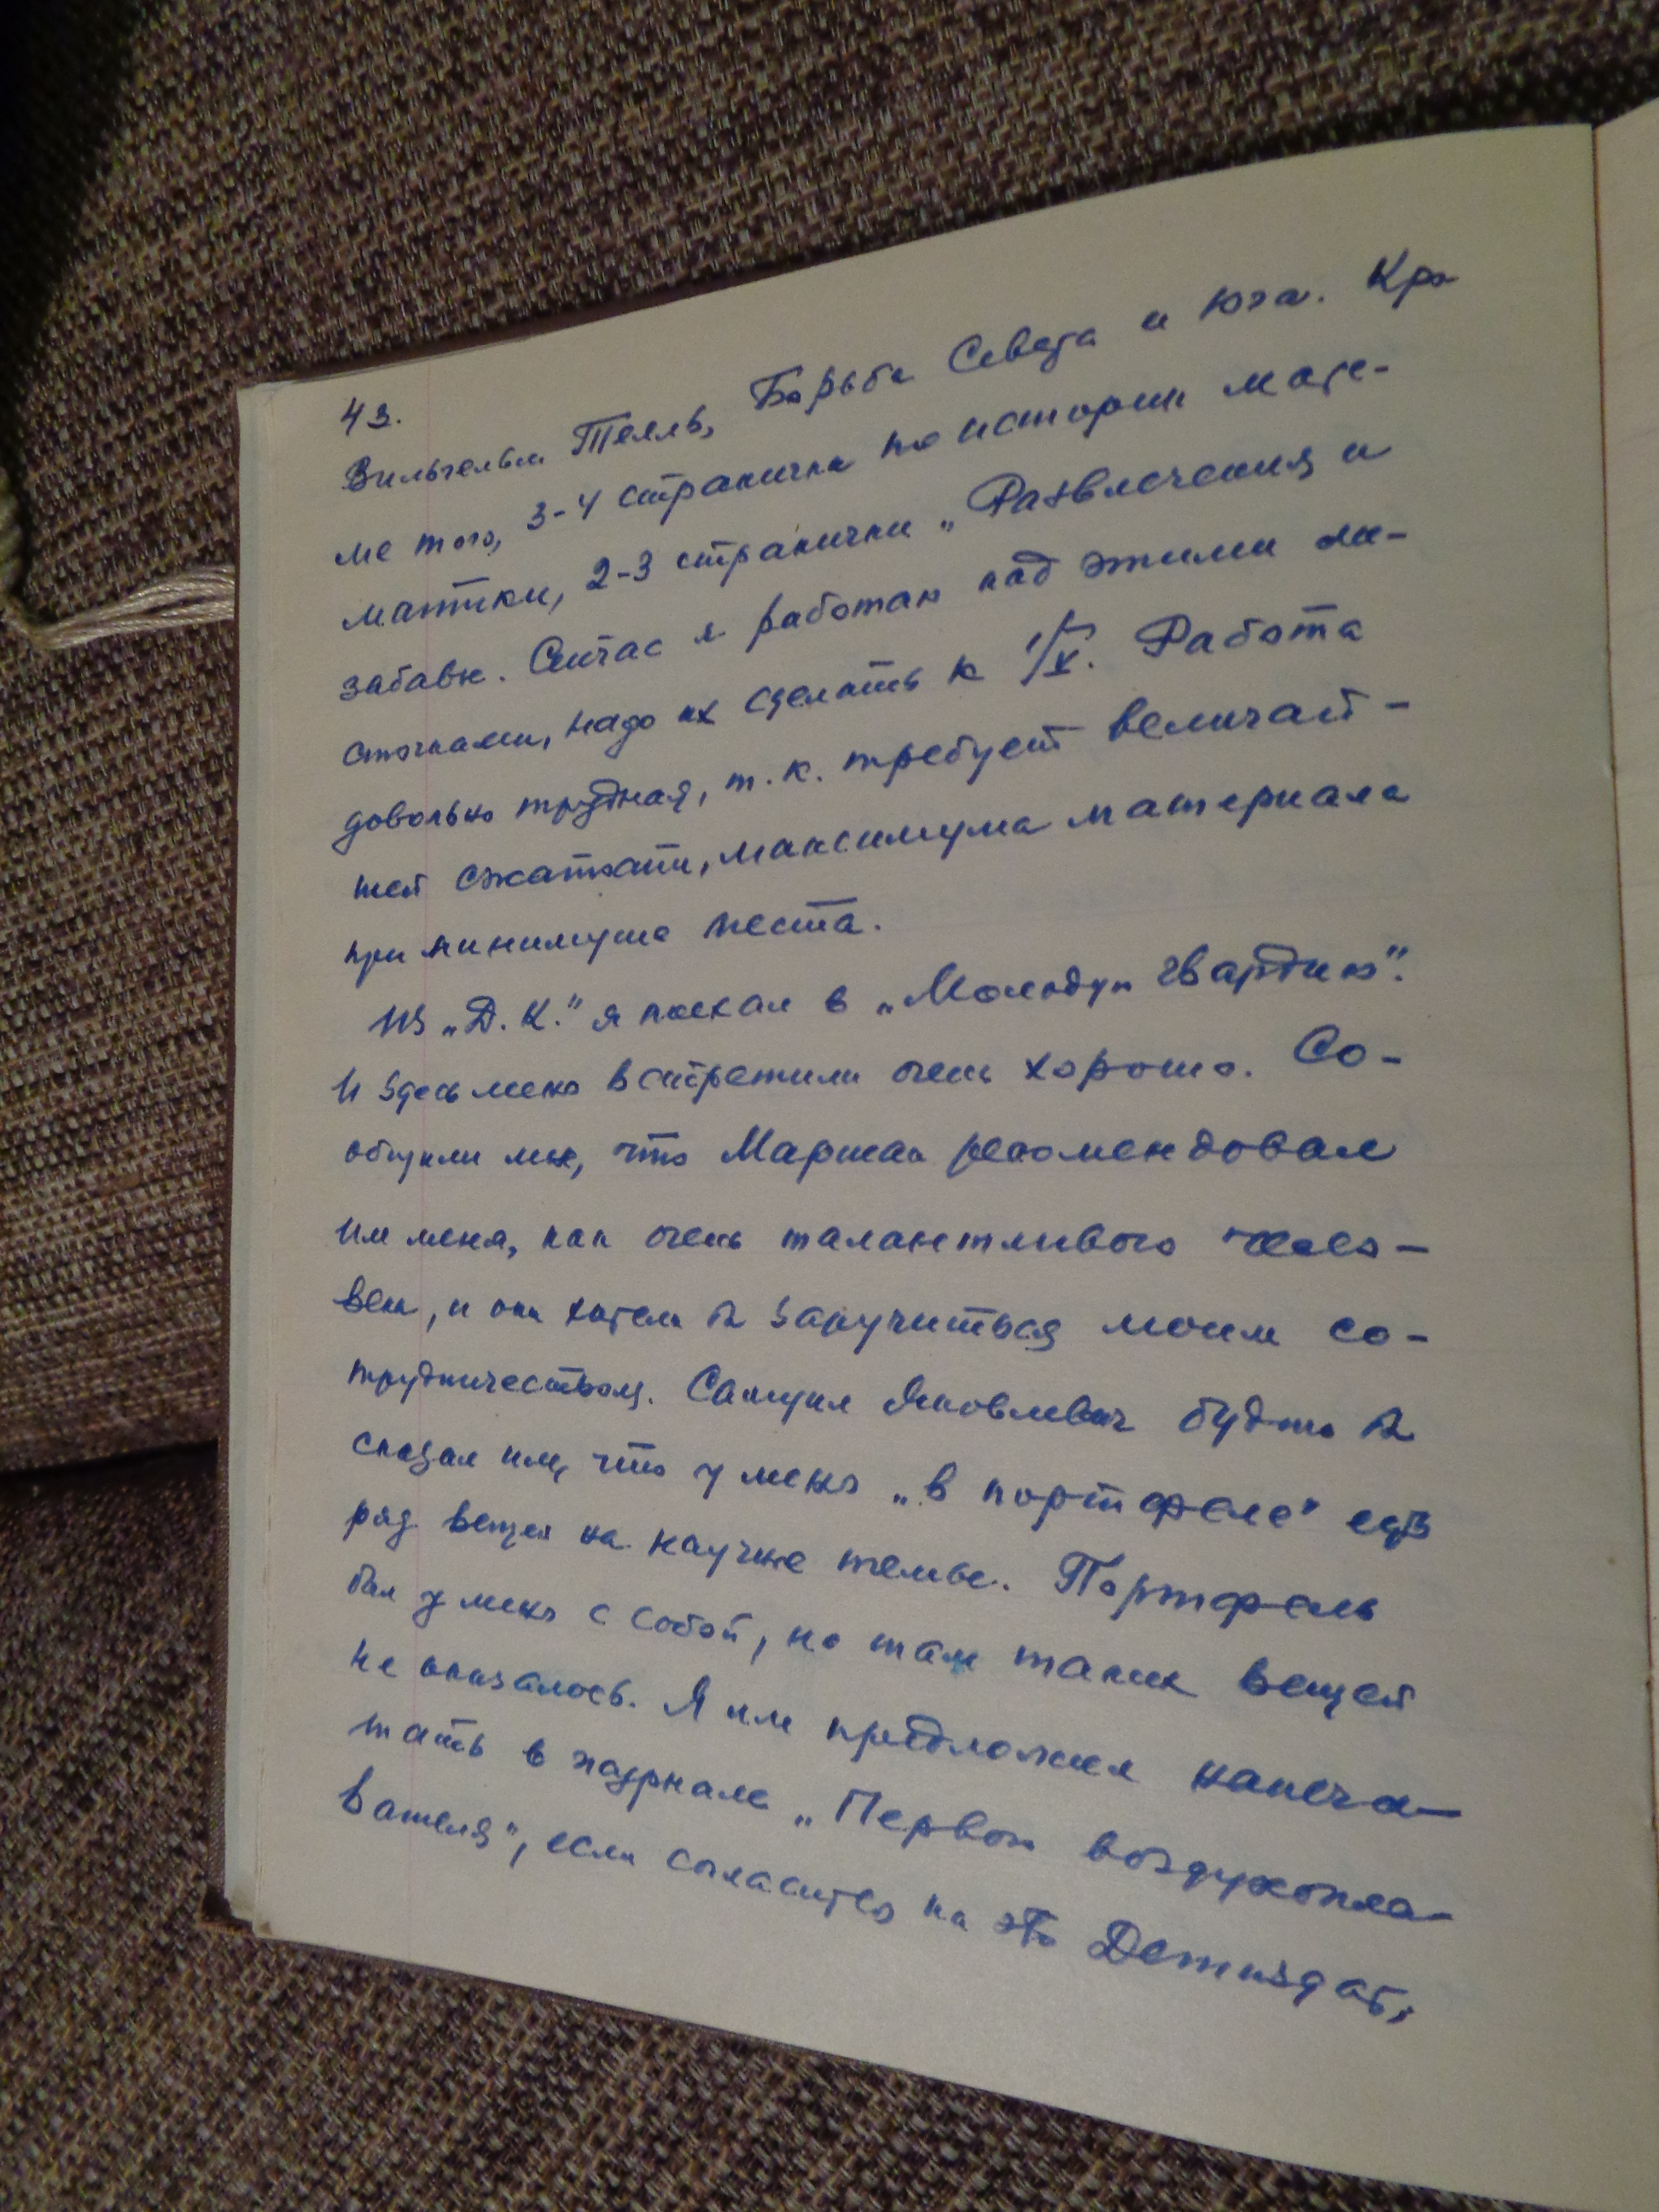 43.
Вильгельм Телль, Борьба Севера и Юга. Кро
ме того, 3-4 странички по истории мате-
матики, 2-3 странички „Развлечения и
забавы. Сейчас я работаю над этими ли-
сточками, надо их сделать к 1/X. Работа
довольно трудная, т. к. требует величай-
шей сжатости, максимума материала
при минимуме места.
Из „Д. К." я поехал в „Молодую гвардию".
И здесь меня встретили очень хорошо. Со-
общили мне, что Маршак рекомендовал
им меня, как очень талантливого чело-
века, и они хотели бы заручиться моим со-
трудничеством. Самуил Яковлевич будто бы
сказал им, что у меня „в портфеле" есть
ряд вещей на научные темы. Портфель
был у меня с собой, но там таких вещей
не оказалось. Я им предложил напеча-
тать в журнале „Первого воздухопла-
вателя", если согласится на это Детиздат,